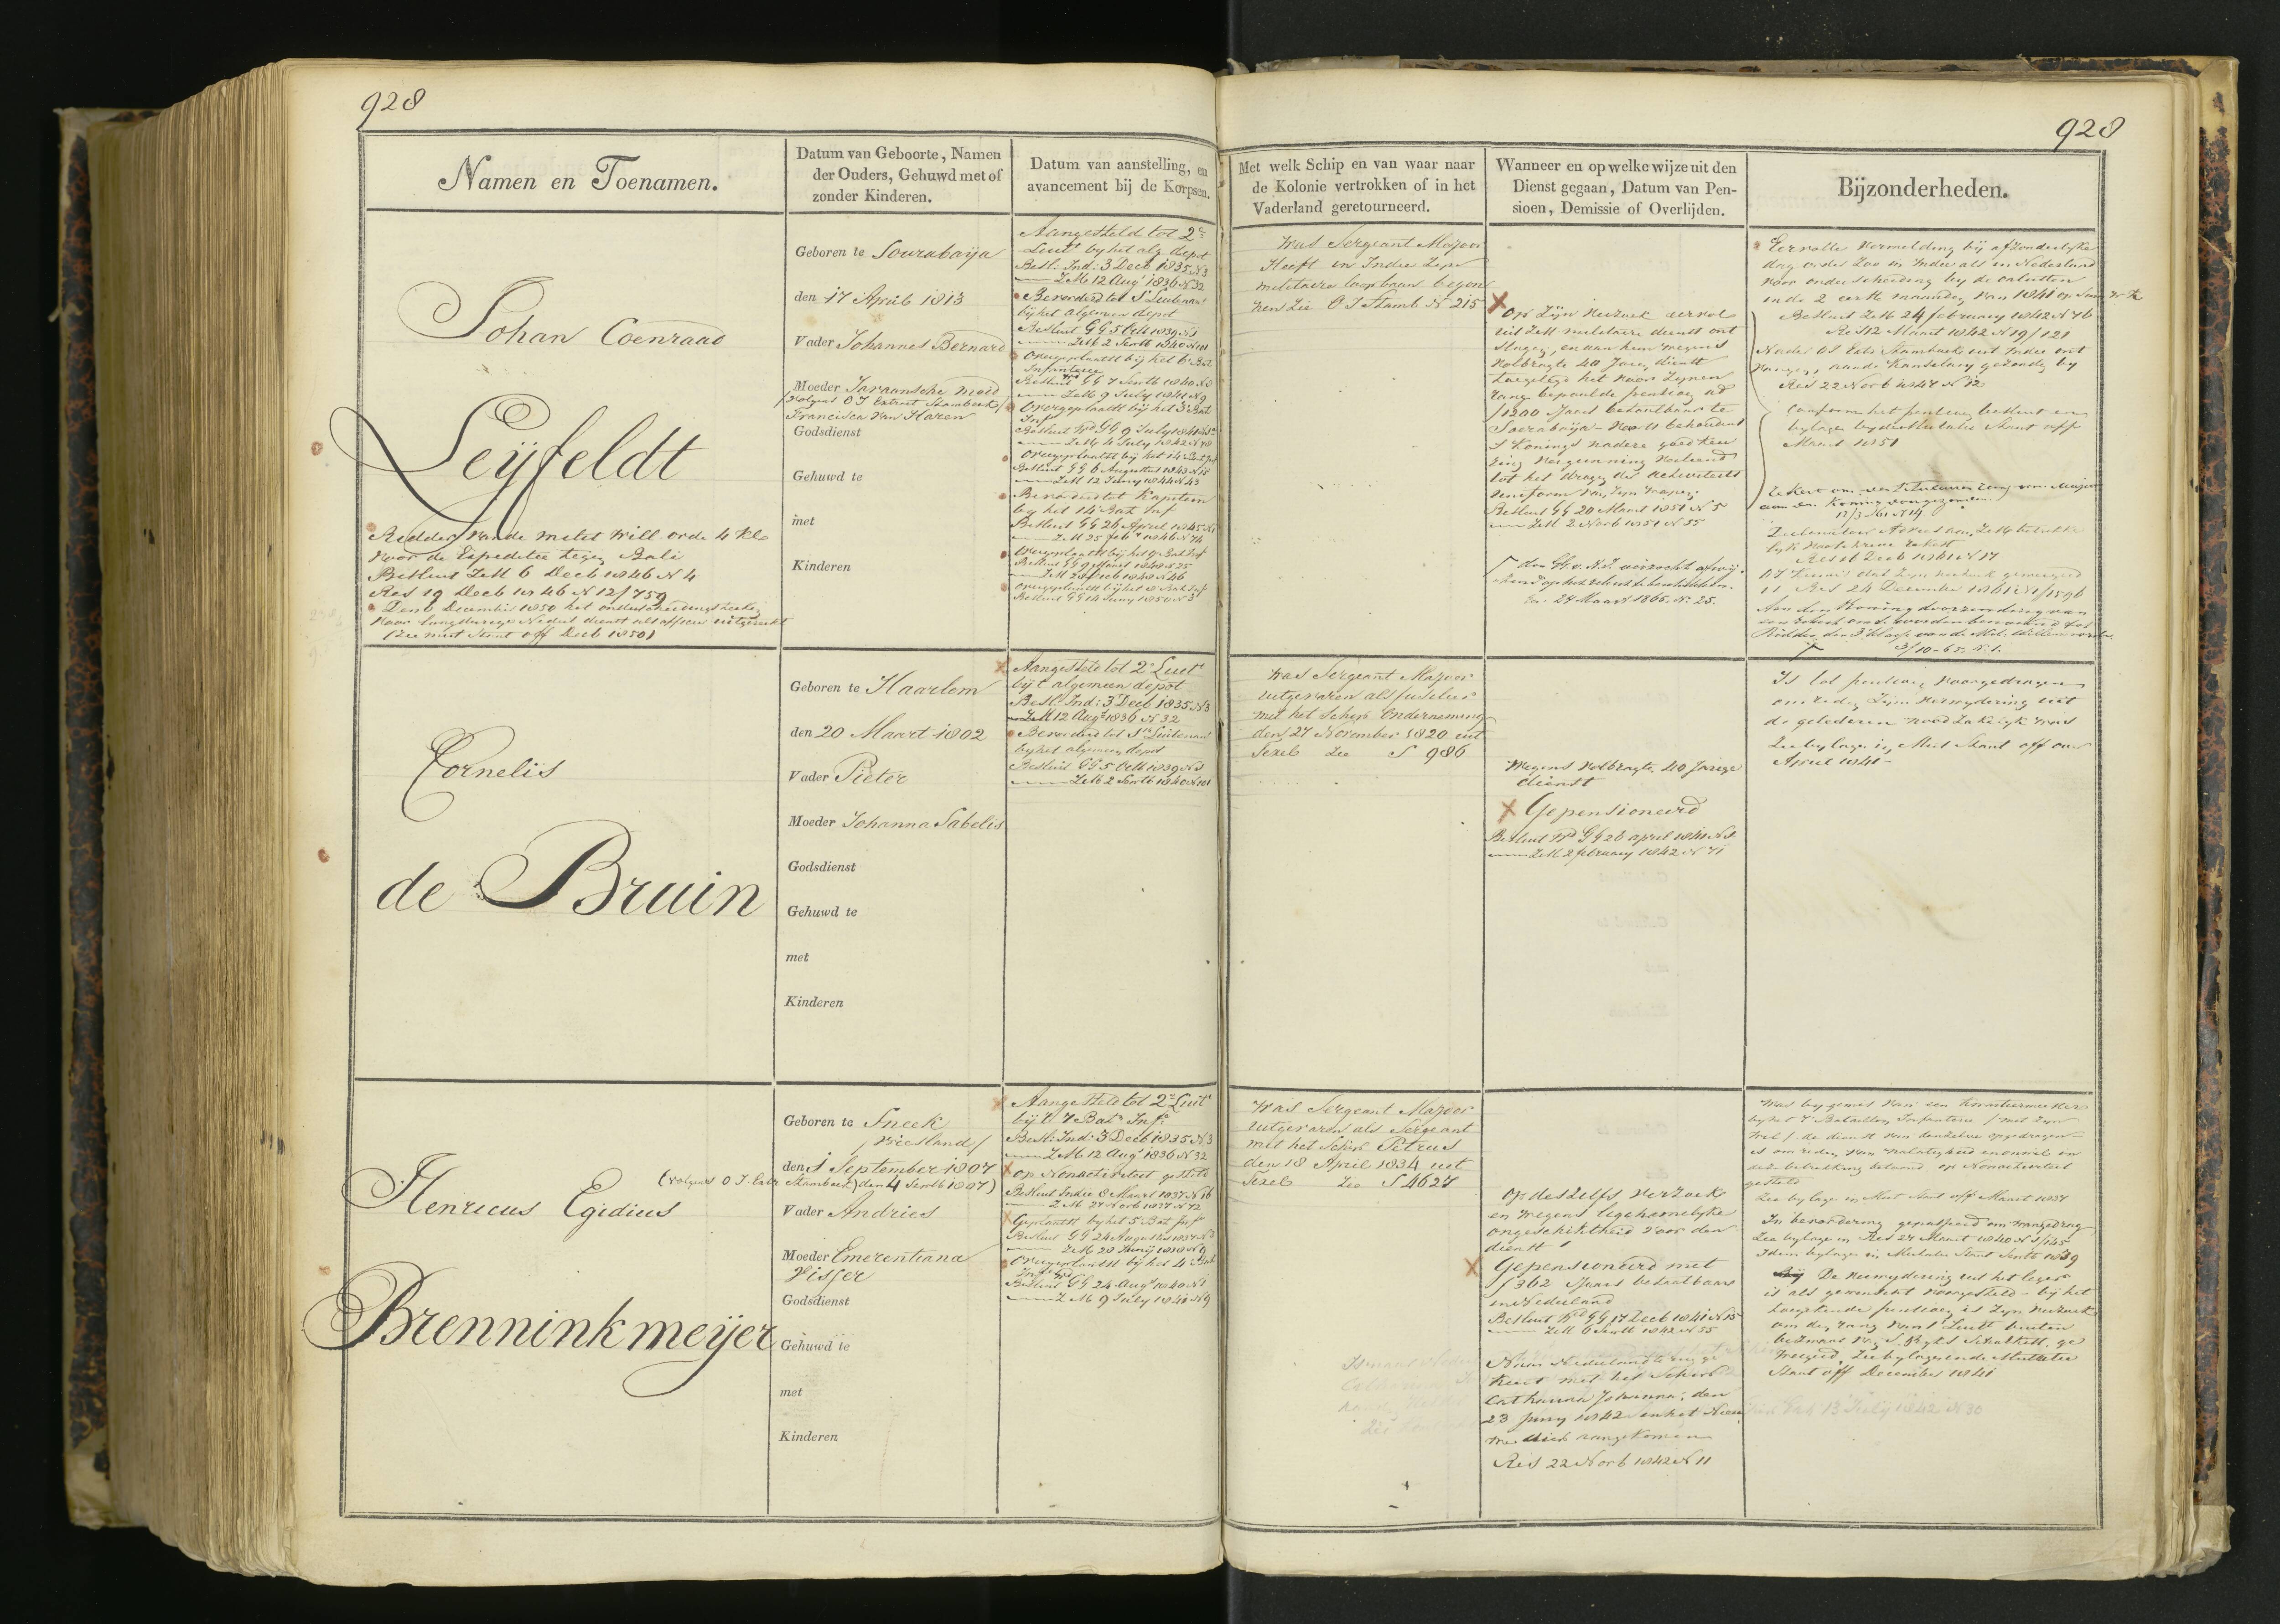 928
928
Namen en Toenamen.
Datum van Geboorte, Namen
der Ouders, Gehuwd met of
zonder Kinderen.
Datum van aanstelling, en
avancement bij de Korpsen.
Met welk Schip en van waar naar
de Kolonie vertrokken of in het
Vaderland geretourneerd.
Wanneer en op welke wijze uit den
Dienst gegaan, Datum van Pen-
sioen, Demissie of Overlijden.
Bijzonderheden.
Johan Coenraad
Leijfeldt
Ridder van de milit Will orde 4 Kls
voor de Expeditie tegen Bali
Besluit ZM 6 Decb 1846 N 4
Res 19 Decb 1846 N 12/759
Den 6 December 1850 het onderscheidingsteeken
voor langdurige Nederl dienst als officier uitgereikt
(Zie Staat off Decb 1850)
Geboren te Sourabaija
den 17 April 1813
Vader Johannes Bernard
Moeder Javaansche meid
(volgens O I Extract Stamboek)
Francisca van Haren
Godsdienst
Gehuwd te
met
Kinderen
Aangesteld tot 2e
Luit by het alg depot
Besl: Ind: 3 Decb 1835 N 3
ZM 12 Augt 1836 N 32
Bevorderd tot 1e Luitenant
bij het algemeen depot
Besluit GG 5 Octb 1839 N 1
ZM 2 Septb 1840 N 101
Overgeplaatst bij het 6e Bat
Infanterie
Besluit GG 7 Septb 1840
ZM 9 July 1841 N 9
Overgeplaatst bij het 3e Bat
Inf
Besluit Wd GG 9 July 1841
ZM 4 July 1842 N 78
Overgeplaatst bij het 14 Bat Inf
Besluit GG 6 Augustus 1843 N 15
ZM 12 Juny 1844 N 43
Bevorderd tot Kapitein
by het 14 Bat Inf
Besluit GG 26 April 1845 N 1
ZM 25 feb 1846 N 74
Overgeplaatst bij het 9e Bat Inf
Besluit GG 9 Maart 1848 N 25
ZM 1848 N 46
Overgeplaatst bij het Bat Inf
Besluit GG 14 Juny 1850 N 3
Was Sergeant Majoor
Heeft in Indie Zyn
militaire loopbaan begon
nen Zie O I Stamb N 215
Op Zijn verzoek eervol
uit ZM militaire dienst ont
slagen, en aan hem wegens
volbragte 40 Jarige dienst
toegelegd het voor Zynen
rang bepaalde pensioen ad
f 1200 Jaars betaalbaar te
Soerabaija
s Konings nadere goedkeu
ring vergunning verleend
tot het dragen der activiteits
uniform van Zyn wapen;
Besluit GG 20 Maart 1851 N 5
ZM 2 Novb 1851 N 55
Den GG. v. N. I. verzocht afwij
zend op het rekest te beschikken.
24 Maart 1865. N. 25.
Eervolle vermelding bij afzonderlyke
dag order Zoo in Indie als in Nederland
voor onderscheiding by de onlusten
in de 2 eerste maanden van 1841 op
Besluit ZM 24 february 1842 N 76
Res 12 Maart 1842 N 19/121
Nader O I Extr Stamboek uit Indie ont
vangen, aan de Kanselary gezonden by
Res 22 Novb 1847 N 12
Conform het pensioen besluit en
bylagen by de Mutatie Staat off
Maart 1851
Rekest om den titulairen rang van Majoor
aan den Koning voorgezonden
12/3 1861 N 14
OI Kennis dat Zyn verzoek gewezen
is Res 24 December 1861 N 1/1596
Aan den Koning doorzending van
een rekest om te worden benoemd tot
Ridder der 3e klasse van de Mil. Willemsorde.
3/10-65. N. 1.
Cornelis
de Bruin
Geboren te Haarlem
den 20 Maart 1802
Vader Pieter
Moeder Johanna Sabelis
Godsdienst
Gehuwd te
met
Kinderen
Aangesteld tot 2e Luitt
bij t algemeen depot
Besl: Ind: 3 Decb 1835 N 3
ZM 12 Augt 1836 N 32
Bevorderd tot 1e Luitenant
by het algemeen depot
Besluit GG 5 Octb 1839 N 1
ZM 2 Septb 1840 N 101
Was Sergeant Majoor
uitgevaren als fuselier
met het Schip Onderneming
den 27 November 1820 uit
Texel Zie S 986
Wegens volbragte 40 Jarige
dienst
Gepensioneerd
Besluit Wd GG 26 april 1841 N 1
ZM 2 february 1842 N 71
Is tot pensioen voorgedragen
om reden Zijne verwydering uit
de gelederen noodzakelyk was
Zie bylagen in Mut Staat off over
April 1841
Henricus Egidius
Brenninkmeijer
Geboren te Sneek
/Vriesland/
den 1 September 1807
(volgens O I Extr Stamboek) den 4 Septb 1807)
Vader Andries
Moeder Emerentiana
Visser
Godsdienst
Gehuwd te
met
Kinderen
Aangesteld tot 2e Luitt
bij t 7 Batn Inf:
Besl: Ind: 3 Decb 1835 N 3
ZM 12 Augt 1836 N 32
Op Nonactiviteit gesteld
Besluit Indie 8 Maart 1837 N 16
ZM 27 Novb 1837 N 72
Geplaatst by het 5 Bat Inf
Besluit GG 24 Augustus 1837 N 3
ZM 28 Junij 1838 N 9
Overgeplaatst bij het 4 Bat
Inf
Besluit GG 24 Augt 1840 N 1
ZM 9 July 1841 N 9
Was Sergeant Majoor
uitgevaren als Sergeant
met het Schip Petrus
den 18 April 1834 uit
Texel Zie S 4627
Op deszelfs verzoek
en wegens ligchamelyke
ongeschiktheid voor den
dienst
Gepensioneerd met
f 362 Jaars betaalbaar
in Nederland
Besluit Wd GG 17 Decb 1841 N 15
ZM 6 Septb 1842 N 55
Naar Nederland terug ge
keert met het Schip
Catharina Johanna; den
23 Juny 1842 in het Nieu
we diep aangekomen
Res 22 Novb 1842 N 11
Was by gemis van een Kwartiermeester
by het 7e Bataillon Infanterie / met Zyn
wil / de dienst van denzelve opgedragen
is om reden van nalatigheid
deze betrekking betoond op Nonactiviteit
gesteld
Zie bylage in Mut Staat off Maart 1837
In bevordering gepasseerd om wangedrag
Zie bylage in Res 27 Maart 1840 N 1/145
Idem bylagen in Mutatie Staat Septb 1839
De verwydering uit het leger
is als gewenscht voorgesteld - bij het
toegekende pensioen is Zyn verzoek
om den rang van 1e Luitt buiten
bezwaar van S Ryks Schatkist, ge
weigerd. Zie bylagen in de Mutatie
Staat off December 1841